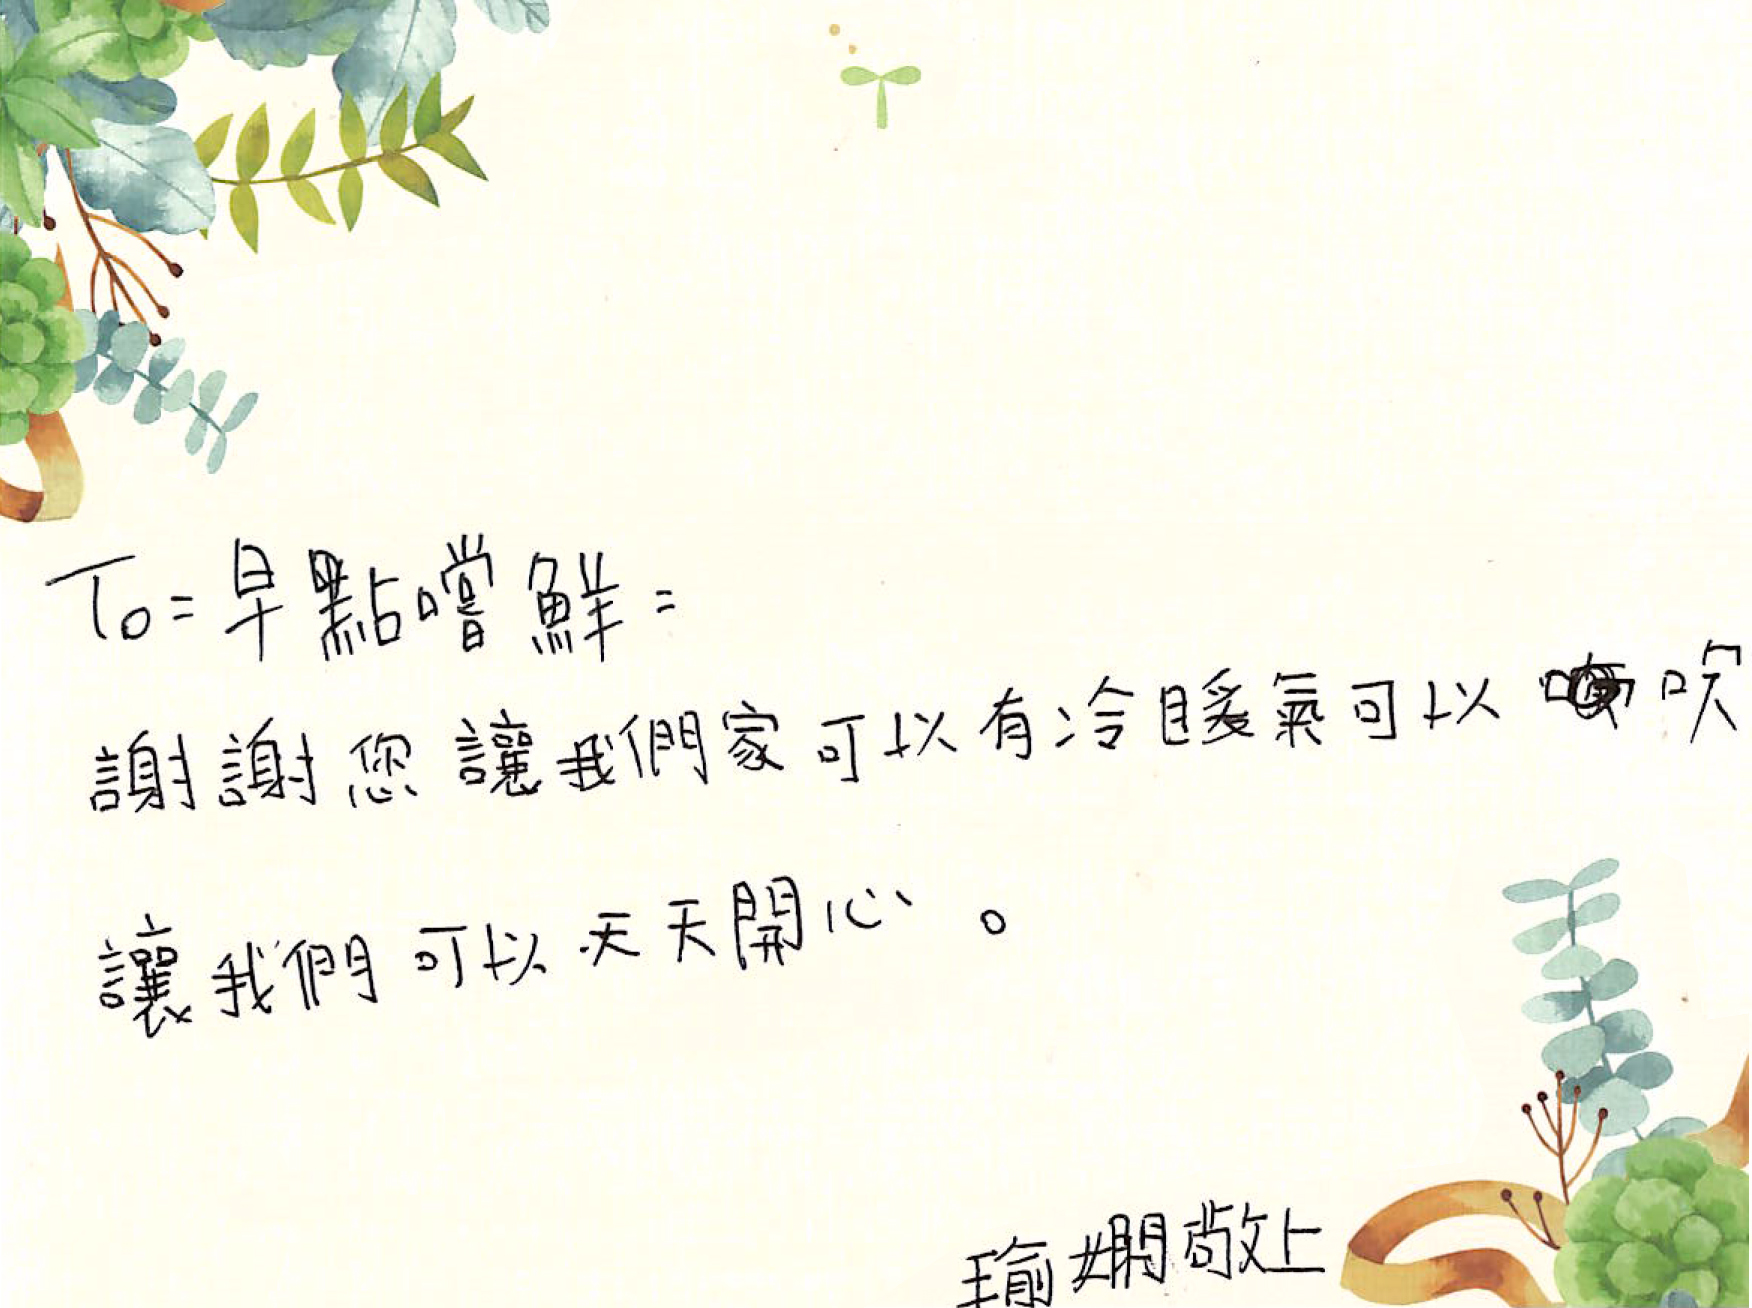 To=早點嚐鮮=
謝謝您讓我們家可以有冷暖氣可以吹
讓我們可以天天開心。
瑜嫻敬上